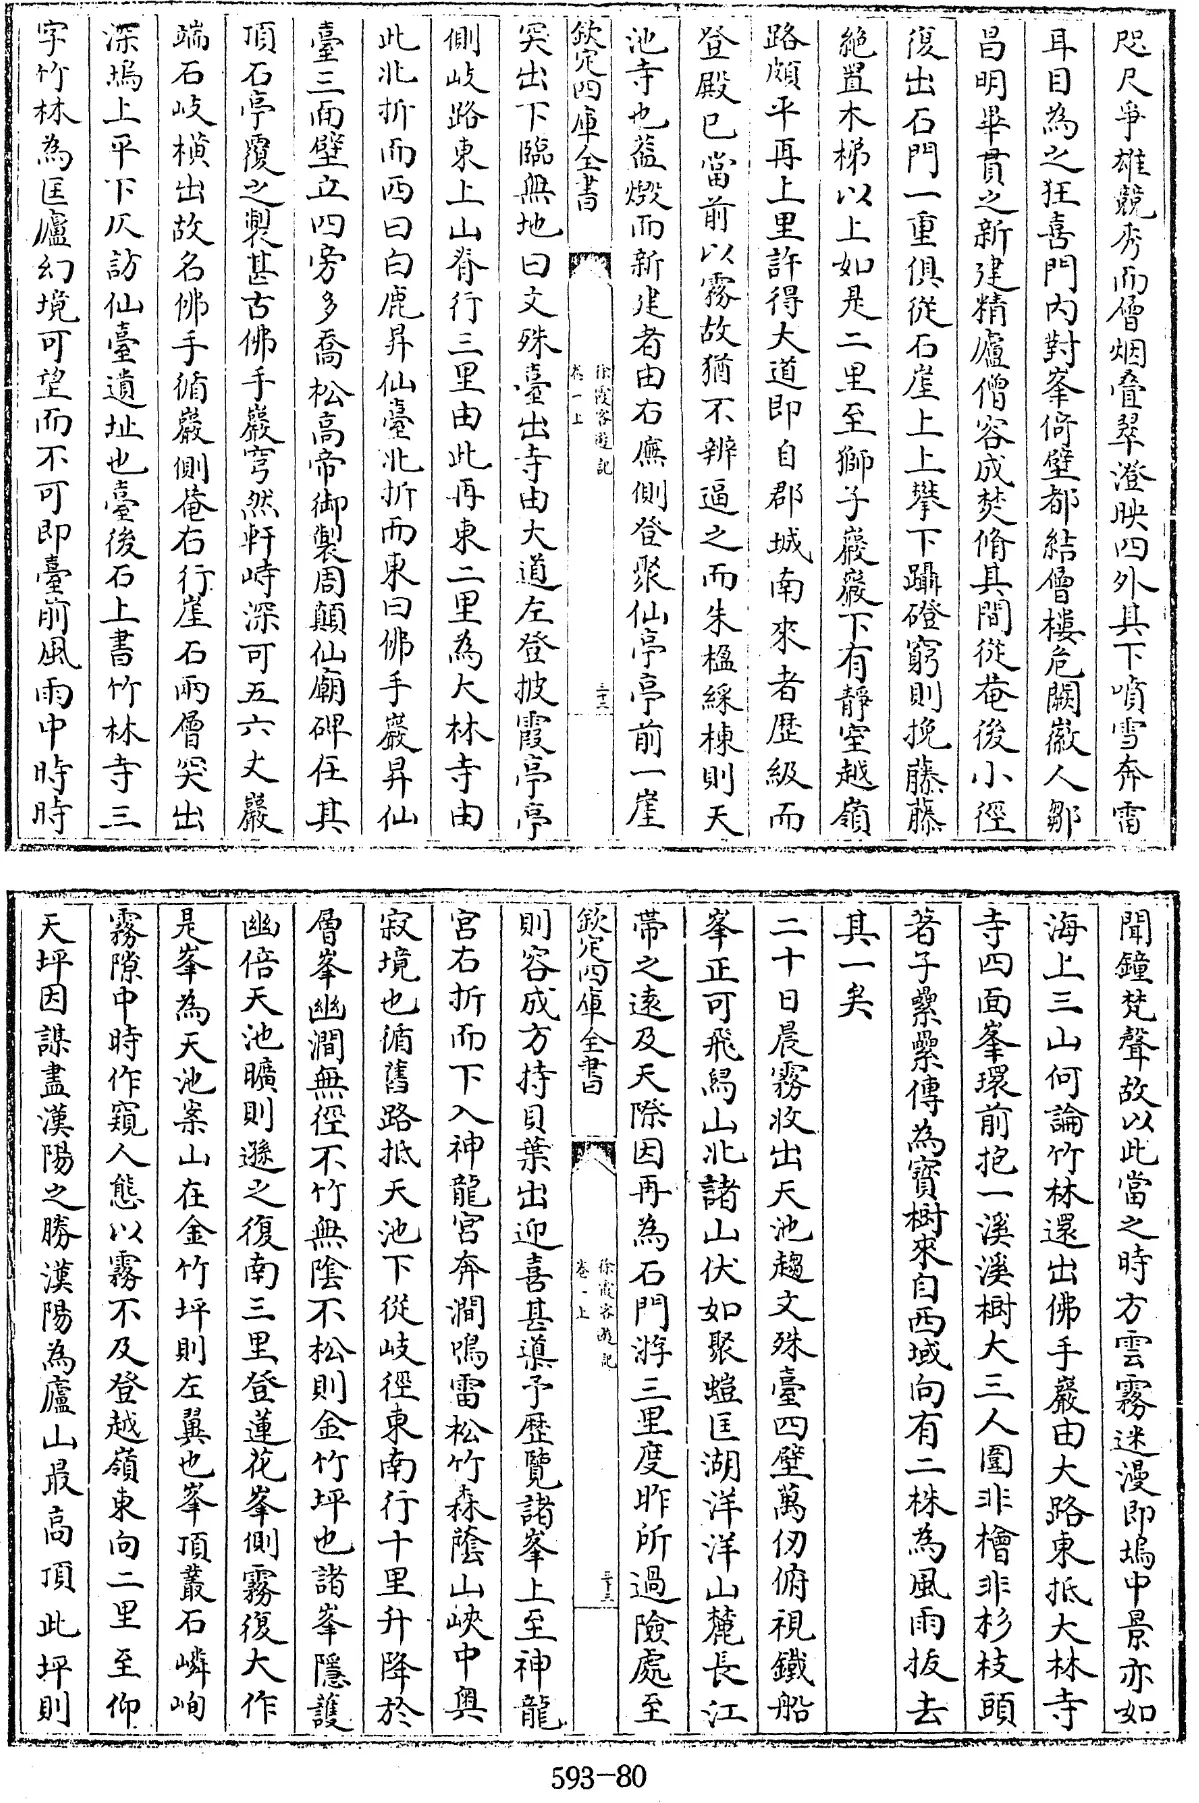 咫尺爭雄競秀而層烟疊翠澄映四外其下噴雪奔雷
耳目為之狂喜門内對峯倚壁都結層樓危闕徽人鄒
昌明畢貫之新建精廬僧容成焚脩其間從菴後小徑
復出石門一重俱從石崖上上攀下躡磴窮則挽藤藤
絶置木梯以上如是二里至獅子巖巖下有靜室越嶺
路頗平再上里許得大道即自郡城南來者歴級而
登殿已當前以霧故猶不辨逼之而朱楹綵棟則天
池寺也葢燬而新建者由右廡側登聚仙亭亭前一崖
欽定四庫全書
徐霞客遊記
卷一上
三十二
突出下臨無地曰文殊臺出寺由大道左登披霞亭亭
側岐路東上山脊行三里由此再東二里為大林寺由
此北折而西曰白鹿昇仙臺北折而東曰佛手巖昇仙
臺三面壁立四旁多喬松高帝御製周顛仙廟碑在其
頂石亭覆之製甚古佛手巖穹然軒峙深可五六丈巖
端石岐横出故名佛手循巖側菴右行崖石兩層突出
深塢上平下仄訪仙臺遺址也臺後石上書竹林寺三
字竹林為匡廬幻境可望而不可即臺前風雨中時時
聞鐘梵聲故以此當之時方雲霧迷漫即塢中景亦如
海上三山何論竹林還出佛手巖由大路東抵大林寺
寺四面峯環前抱一溪溪樹大三人圍非檜非杉枝頭
著子纍纍傳為寳樹來自西域向有二株為風雨拔去
其一矣
二十日晨霧收出天池趨文殊臺四壁萬仞俯視鐵船
峯正可飛舄山北諸山伏如聚螘匡湖洋洋山麓長江
帶之遠及天際因再為石門游三里度昨所過險處至
欽定四庫全書
徐霞客遊記
卷一上
三十三
則容成方持貝葉出迎喜甚導予歴覽諸峯上至神龍
宮右折而下入神龍宮奔澗鳴雷松竹森蔭山峽中奥
寂境也循舊路抵天池下從岐徑東南行十里升降於
層峯幽澗無徑不竹無陰不松則金竹坪也諸峯隱護
幽倍天池曠則遜之復南三里登蓮花峯側霧復大作
是峯為天池案山在金竹坪則左翼也峯頂叢石嶙峋
霧隙中時作窺人態以霧不及登越嶺東向二里至仰
天坪因謀盡漢陽之勝漢陽為廬山最高頂此坪則
593-80